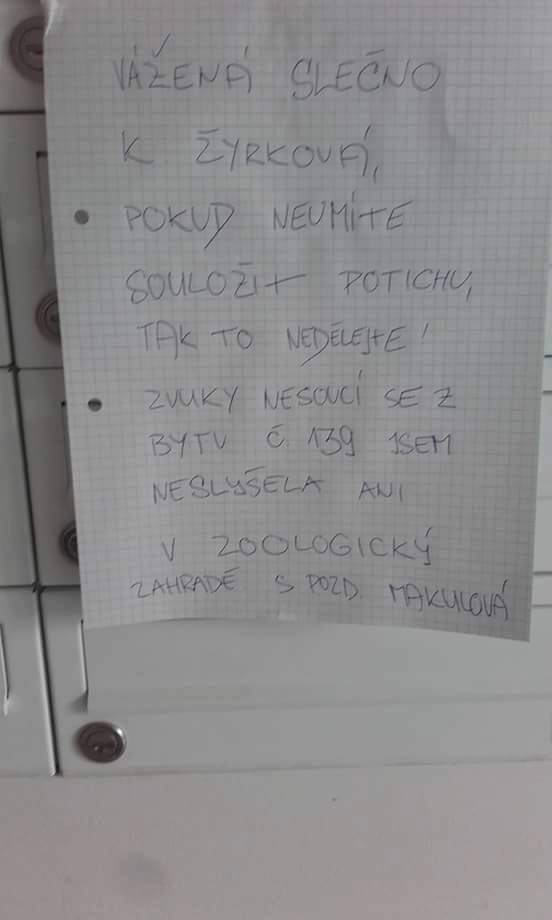 VÁŽENÁ SLEČNO
K ŽYRKOVÁ,
POKUD NEUMÍTE
SOULOŽIT POTICHU,
TAK TO NEDĚLEJTE!
ZVUKY NESOUCÍ SE Z
BYTU Č 139 JSEM
NESLYŠELA ANI
V ZOOLOGICKÝ
ZAHRADĚ S POZD. MAKULOVÁ